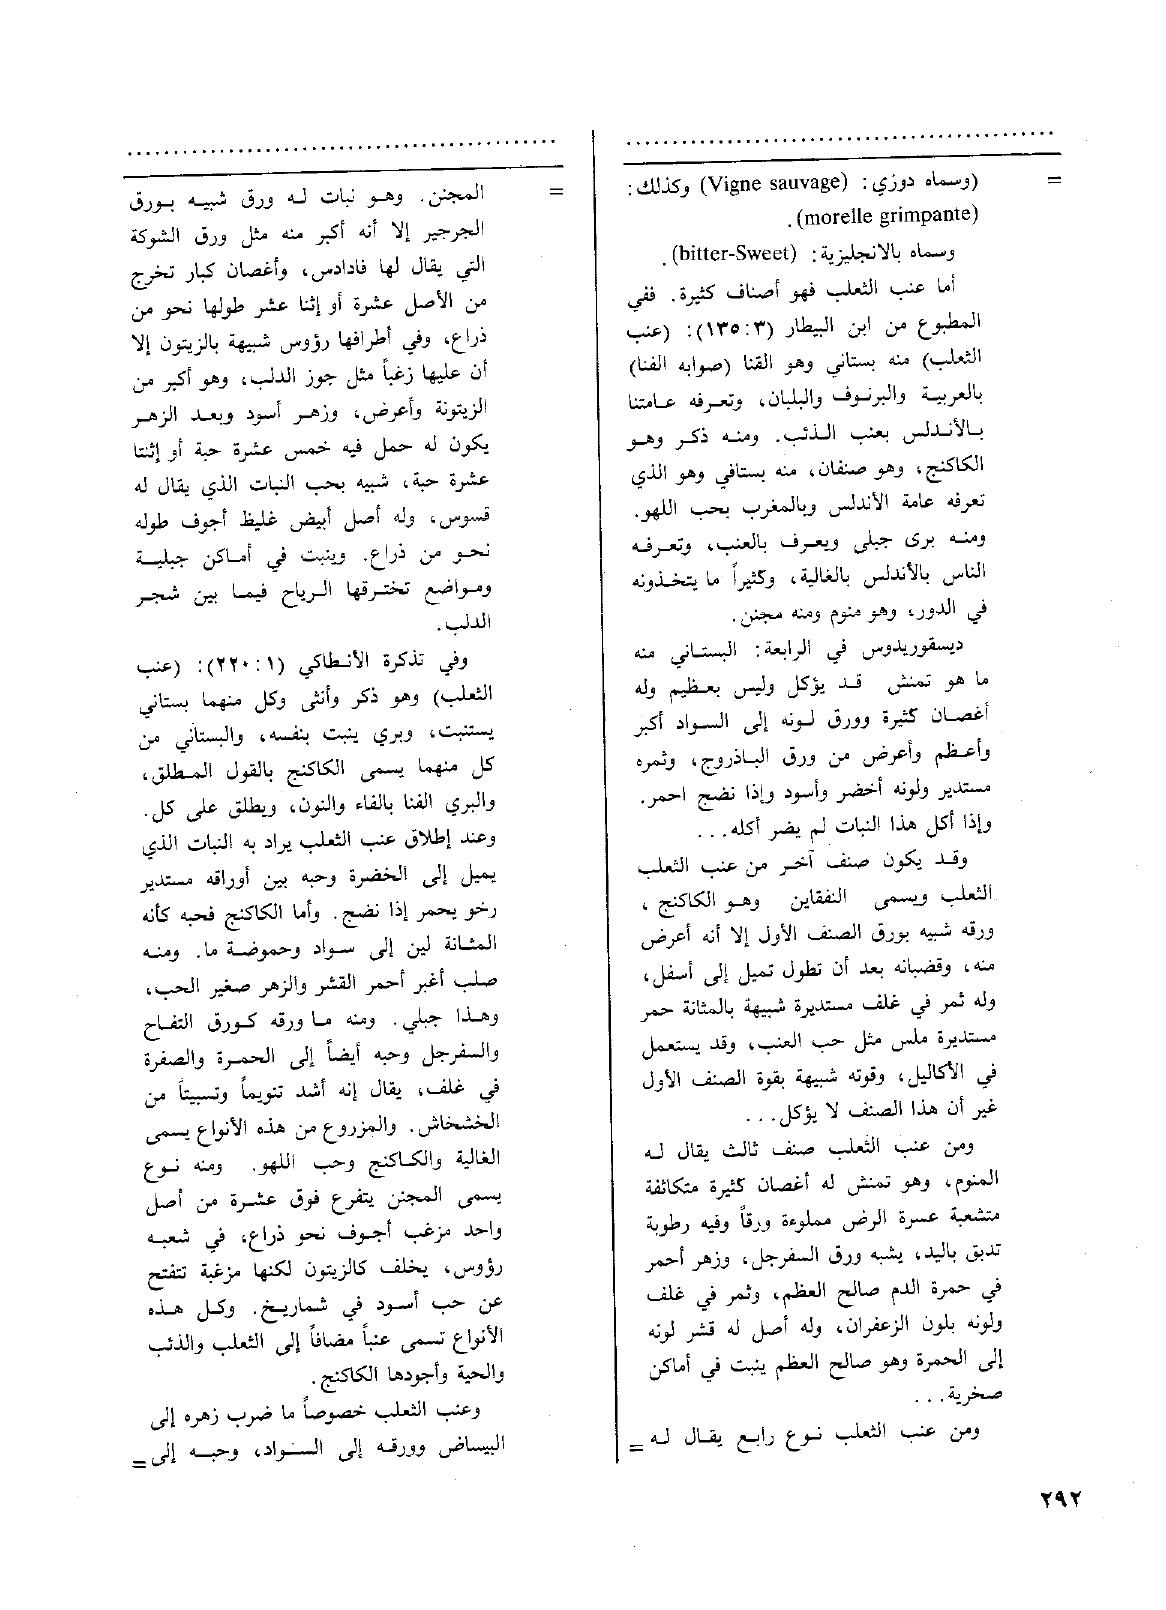 = (وسماه دوزي: (Vigne sauvage) وكذلك:
(morelle grimpante).
وسماه بالانجليزية: (bitter-Sweet).
أما عنب الثعلب فهو أصناف كثيرة. ففي
المطبوع من ابن البيطار (٣: ١٣٥): (عنب
الثعلب) منه بستاني وهو القنا (صوابه الفنا)
بالعربية والبرنوف والبلبان، وتعرفه عامتنا
بالأندلس بعنب الذئب. ومنه ذكر وهو
الكاكنج، وهو صنفان، منه بستافي وهو الذي
تعرفه عامة الأندلس وبالمغرب بحب اللهو.
ومنه برى جبلي ويعرف بالعنب، وتعرفه
الناس بالأندلس بالغالية، وكثيراً ما يتخذونه
في الدور، وهو منوم ومنه مجنن.
ديسقوريدوس في الرابعة: البستاني منه
ما هو تمنش قد يؤكل وليس بعظيم وله
أغصان كثيرة وورق لونه إلى السواد أكبر
وأعظم وأعرض من ورق الباذروج، وثمره
مستدير ولونه أخضر وأسود وإذا نضج احمر.
وإذا أكل هذا النبات لم يضر أكله...
وقد يكون صنف آخر من عنب الثعلب
الثعلب ويسمى النفقاين وهو الكاكنج ،
ورقه شبيه بورق الصنف الأول إلا أنه أعرض
منه، وقضبانه بعد أن تطول تميل إلى أسفل،
وله ثمر في غلف مستديرة شبيهة بالمثانة حمر
مستديرة ملس مثل حب العنب، وقد يستعمل
في الأكاليل، وقوته شبيهة بقوة الصنف الأول
غير أن هذا الصنف لا يؤكل...
ومن عنب الثعلب صنف ثالث يقال له
المنوم، وهو تمنش له أغصان كثيرة متكاثفة
متشعبة عسرة الرض مملوءة ورقاً وفيه رطوبة
تدبق باليد، يشبه ورق السفرجل، وزهر أحمر
في حمرة الدم صالح العظم، وثمر في غلف
ولونه بلون الزعفران، وله أصل له قشر لونه
إلى الحمرة وهو صالح العظم ينبت في أماكن
صخرية...
ومن عنب الثعلب نوع رابع يقال له =
= المجنن. وهو نبات له ورق شبيه بورق
الجرجير إلا أنه أكبر منه مثل ورق الشوكة
التي يقال لها فادادس، وأغصان كبار تخرج
من الأصل عشرة أو إثنا عشر طولها نحو من
ذراع، وفي أطرافها رؤوس شبيهة بالزيتون إلا
أن عليها زغباً مثل جوز الدلب، وهو أكبر من
الزيتونة وأعرض، وزهر أسود وبعد الزهر
يكون له حمل فيه خمس عشرة حبة أو إثنتا
عشرة حبة، شبيه بحب النبات الذي يقال له
قسوس، وله أصل أبيض غليظ أجوف طوله
نحو من ذراع. وينبت في أماكن جبلية
ومواضع تخترقها الرياح فيما بين شجر
الدلب.
وفي تذكرة الأنطاكي (١: ٢٢٠): (عنب
الثعلب) وهو ذكر وأنثى وكل منهما بستاني
يستنبت، وبري ينبت بنفسه، والبستاني من
كل منهما يسمى الكاكنج بالقول المطلق،
والبري الفنا بالفاء والنون، ويطلق على كل.
وعند إطلاق عنب الثعلب يراد به النبات الذي
يميل إلى الخضرة وحبه بين أوراقه مستدير
رخو يحمر إذا نضج. وأما الكاكنج فحبه كأنه
المثانة لين إلى سواد وحموضة ما. ومنه
صلب أغبر أحمر القشر والزهر صغير الحب،
وهذا جبلي. ومنه ما ورقه كورق التفاح
والسفرجل وحبه أيضاً إلى الحمرة والصفرة
في غلف، يقال إنه أشد تنويماً وتسبيتاً من
الخشخاش. والمزروع من هذه الأنواع يسمى
الغالية والكاكنج وحب اللهو. ومنه نوع
يسمى المجنن يتفرع فوق عشرة من أصل
واحد مزغب أجوف نحو ذراع، في شعبه
رؤوس، يخلف كالزيتون لكنها مزغبة تتفتح
عن حب أسود في شماريخ. وكل هذه
الأنواع تسمى عنباً مضافاً إلى الثعلب والذئب
والحية وأجودها الكاكنج.
وعنب الثعلب خصوصاً ما ضرب زهره إلى
البياض وورقه إلى السواد، وحبه إلى =
٢٩٢